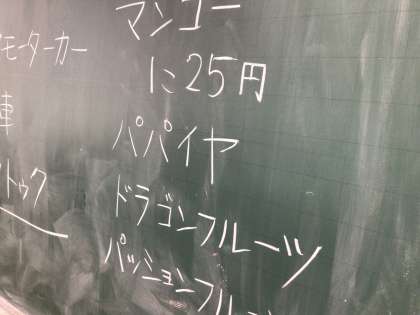 マンゴー
に25円
パパイヤ
ドラゴンフルーツ
パッションフルー
モーターカー
車
トゥク